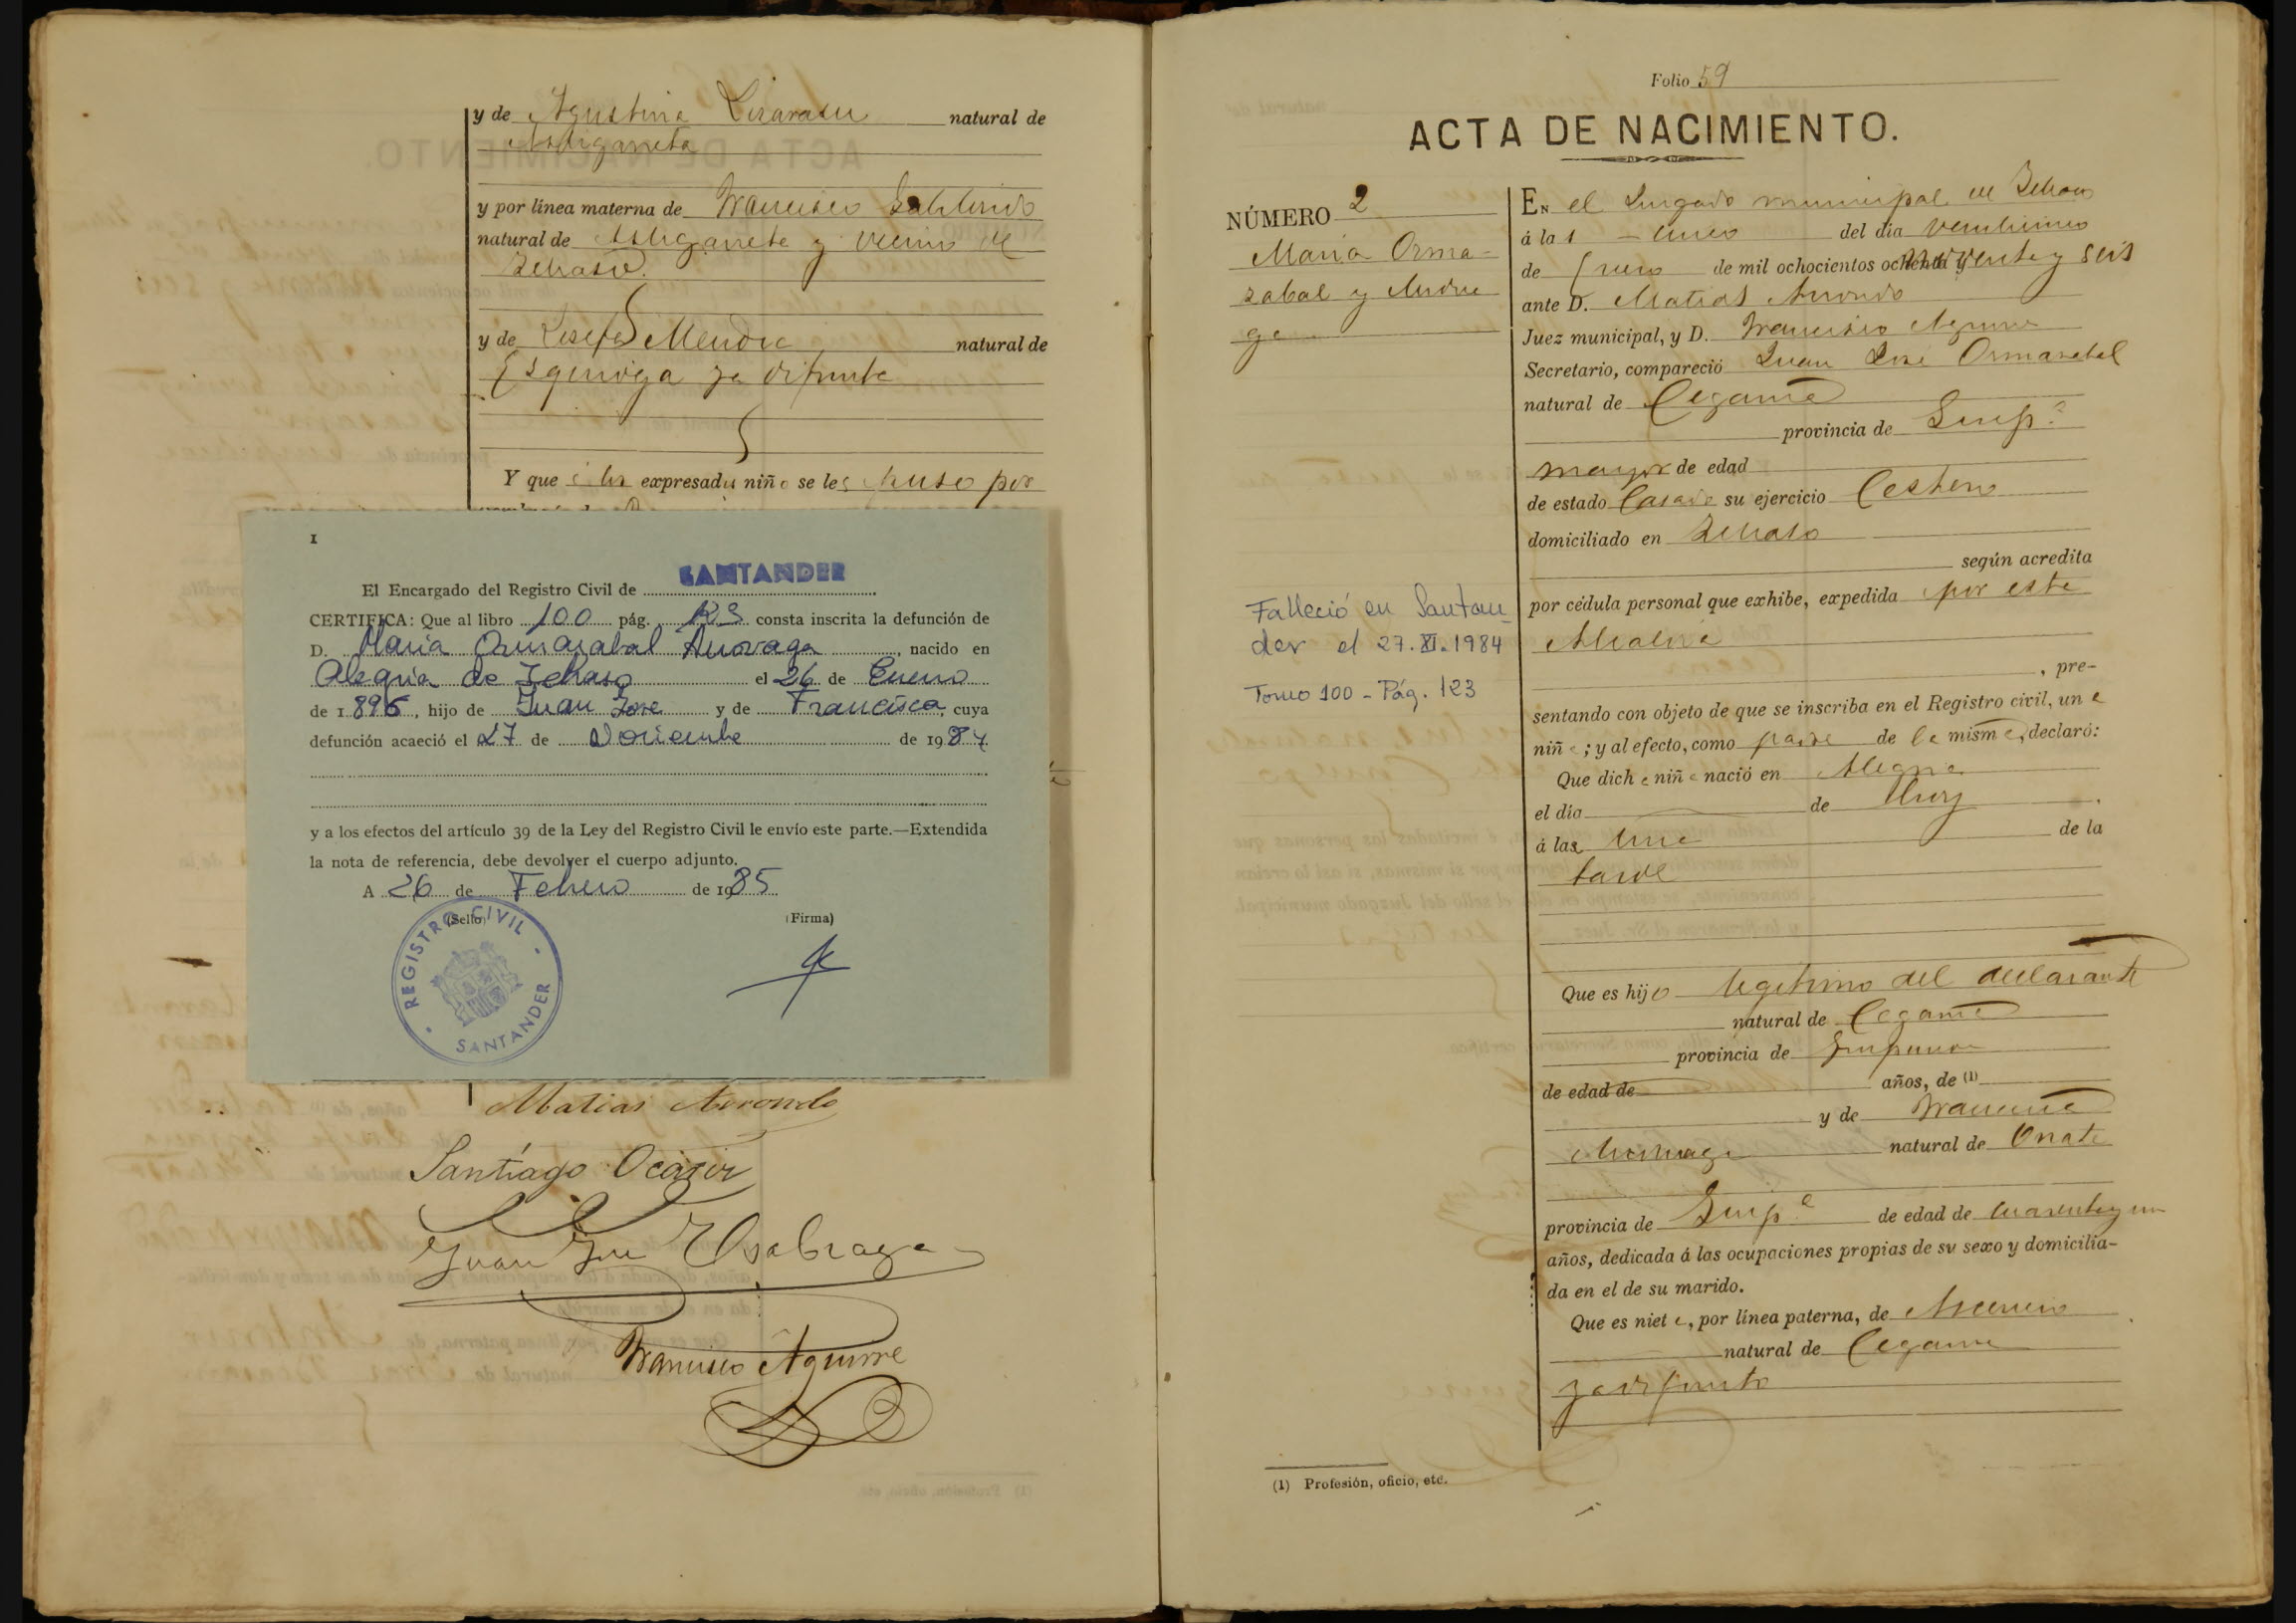 y de Agustina Lizarasu natural de
Astigarreta
y por línea materna de Francisco
natural de Astigarreta y vecino de
y de Josefa Mendia natural de
Ezquioga ya difunta
Y que expresad niñ se le puso por
I
El Encargado del Registro Civil de SANTANDER
CERTIFICA: Que al libro 100 pág. 123 consta inscrita la defunción de
D. Maria Ormazabal , nacido en
Alegria de el 26 de Enero
de 1.896, hijo de Juan Jose y de Francisca, cuya
defunción acaeció el 27 de Noviembre de 1984
y a los efectos del artículo 39 de la Ley del Registro Civil le envío este parte.—Extendida
la nota de referencia, debe devolver el cuerpo adjunto.
A 26 de Febrero de 1985
(Sello)
(Firma)
REGISTRO CIVIL
SANTANDER
Matias Arrondo
Santiago
Juan
Francisco Aguirre
Folio 59
ACTA DE NACIMIENTO.
NÚMERO 2
Maria Orma-
zabal y
ga
Falleció en Santan-
der el 27.XI.1984
Tomo 100 - Pág. 123
EN el Juzgado municipal de
á las cinco del día veintiseis
de Enero de mil ochocientos ochenta y noventa y seis
ante D. Matias Arrondo
Juez municipal, y D. Francisco Aguirre
Secretario, compareció Juan José Ormazabal
natural de Cegama
provincia de Guip.ª
mayor de edad
de estado Casado su ejercicio Cestero
domiciliado en
según acredita
por cédula personal que exhibe, expedida por esta
Alcaldia
, pre-
sentando con objeto de que se inscriba en el Registro civil, un a
niña; y al efecto, como padre de la misma, declaró:
Que dicha niña nació en Alegria
el día de hoy
á las una de la
tarde
Que es hijo legitimo del declarante
natural de Cegama
provincia de Guipuzcoa
de edad de años, de (1)
y de Francisca
natural de Oñate
provincia de Guip.ª de edad de cuarenta y un
años, dedicada á las ocupaciones propias de su sexo y domicilia-
da en el de su marido.
Que es nieta, por línea paterna, de
natural de Cegama
ya difunto
(1) Profesión, oficio, etc.